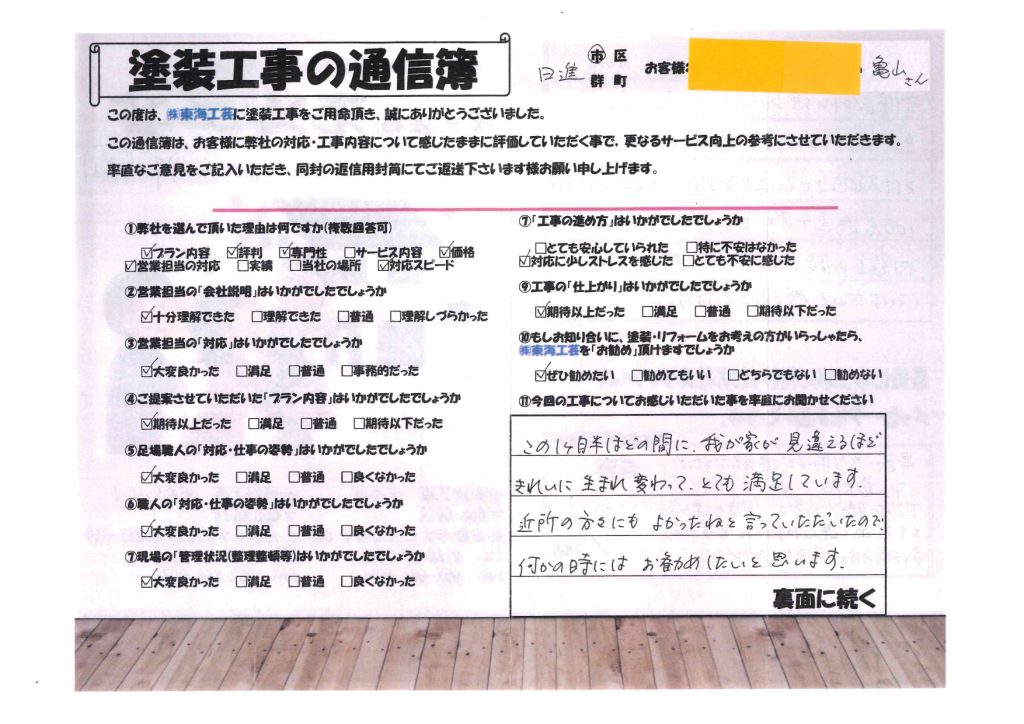 塗装工事の通信簿
日進 市 区
群 町
お客様 亀山さん
この度は、㈱東海工芸に塗装工事をご用命頂き、誠にありがとうございました。
この通信簿は、お客様に弊社の対応・工事内容について感じたままに評価していただく事で、更なるサービス向上の参考にさせていただきます。
率直なご意見をご記入いただき、同封の返信用封筒にてご返送下さいます様お願い申し上げます。
①弊社を選んで頂いた理由は何ですか(複数回答可)
☑プラン内容 ☑評判 ☑専門性 □サービス内容 ☑価格
☑営業担当の対応 □実績 □当社の場所 ☑対応スピード
②営業担当の「会社説明」はいかがでしたでしょうか
☑十分理解できた □理解できた □普通 □理解しづらかった
③営業担当の「対応」はいかがでしたでしょうか
☑大変良かった □満足 □普通 □事務的だった
④ご提案させていただいた「プラン内容」はいかがでしたでしょうか
☑期待以上だった □満足 □普通 □期待以下だった
⑤足場職人の「対応・仕事の姿勢」はいかがでしたでしょうか
☑大変良かった □満足 □普通 □良くなかった
⑥職人の「対応・仕事の姿勢」はいかがでしたでしょうか
☑大変良かった □満足 □普通 □良くなかった
⑦現場の「管理状況(整理整頓等)はいかがでしたでしょうか
☑大変良かった □満足 □普通 □良くなかった
⑦「工事の進め方」はいかがでしたでしょうか
□とても安心していられた □特に不安はなかった
☑対応に少しストレスを感じた □とても不安に感じた
⑨工事の「仕上がり」はいかがでしたでしょうか
☑期待以上だった □満足 □普通 □期待以下だった
⑩もしお知り合いに、塗装・リフォームをお考えの方がいらっしゃたら、
㈱東海工芸を「お勧め」頂けますでしょうか
☑ぜひ勧めたい □勧めてもいい □どちらでもない □勧めない
⑪今回の工事についてお感じいただいた事を率直にお聞かせください
この1ヶ月半ほどの間に、我が家が見違えるほど
きれいに生まれ変わって、とても満足しています。
近所の方々にもよかったねと言っていただいたので
何かの時にはお勧めしたいと思います。
裏面に続く